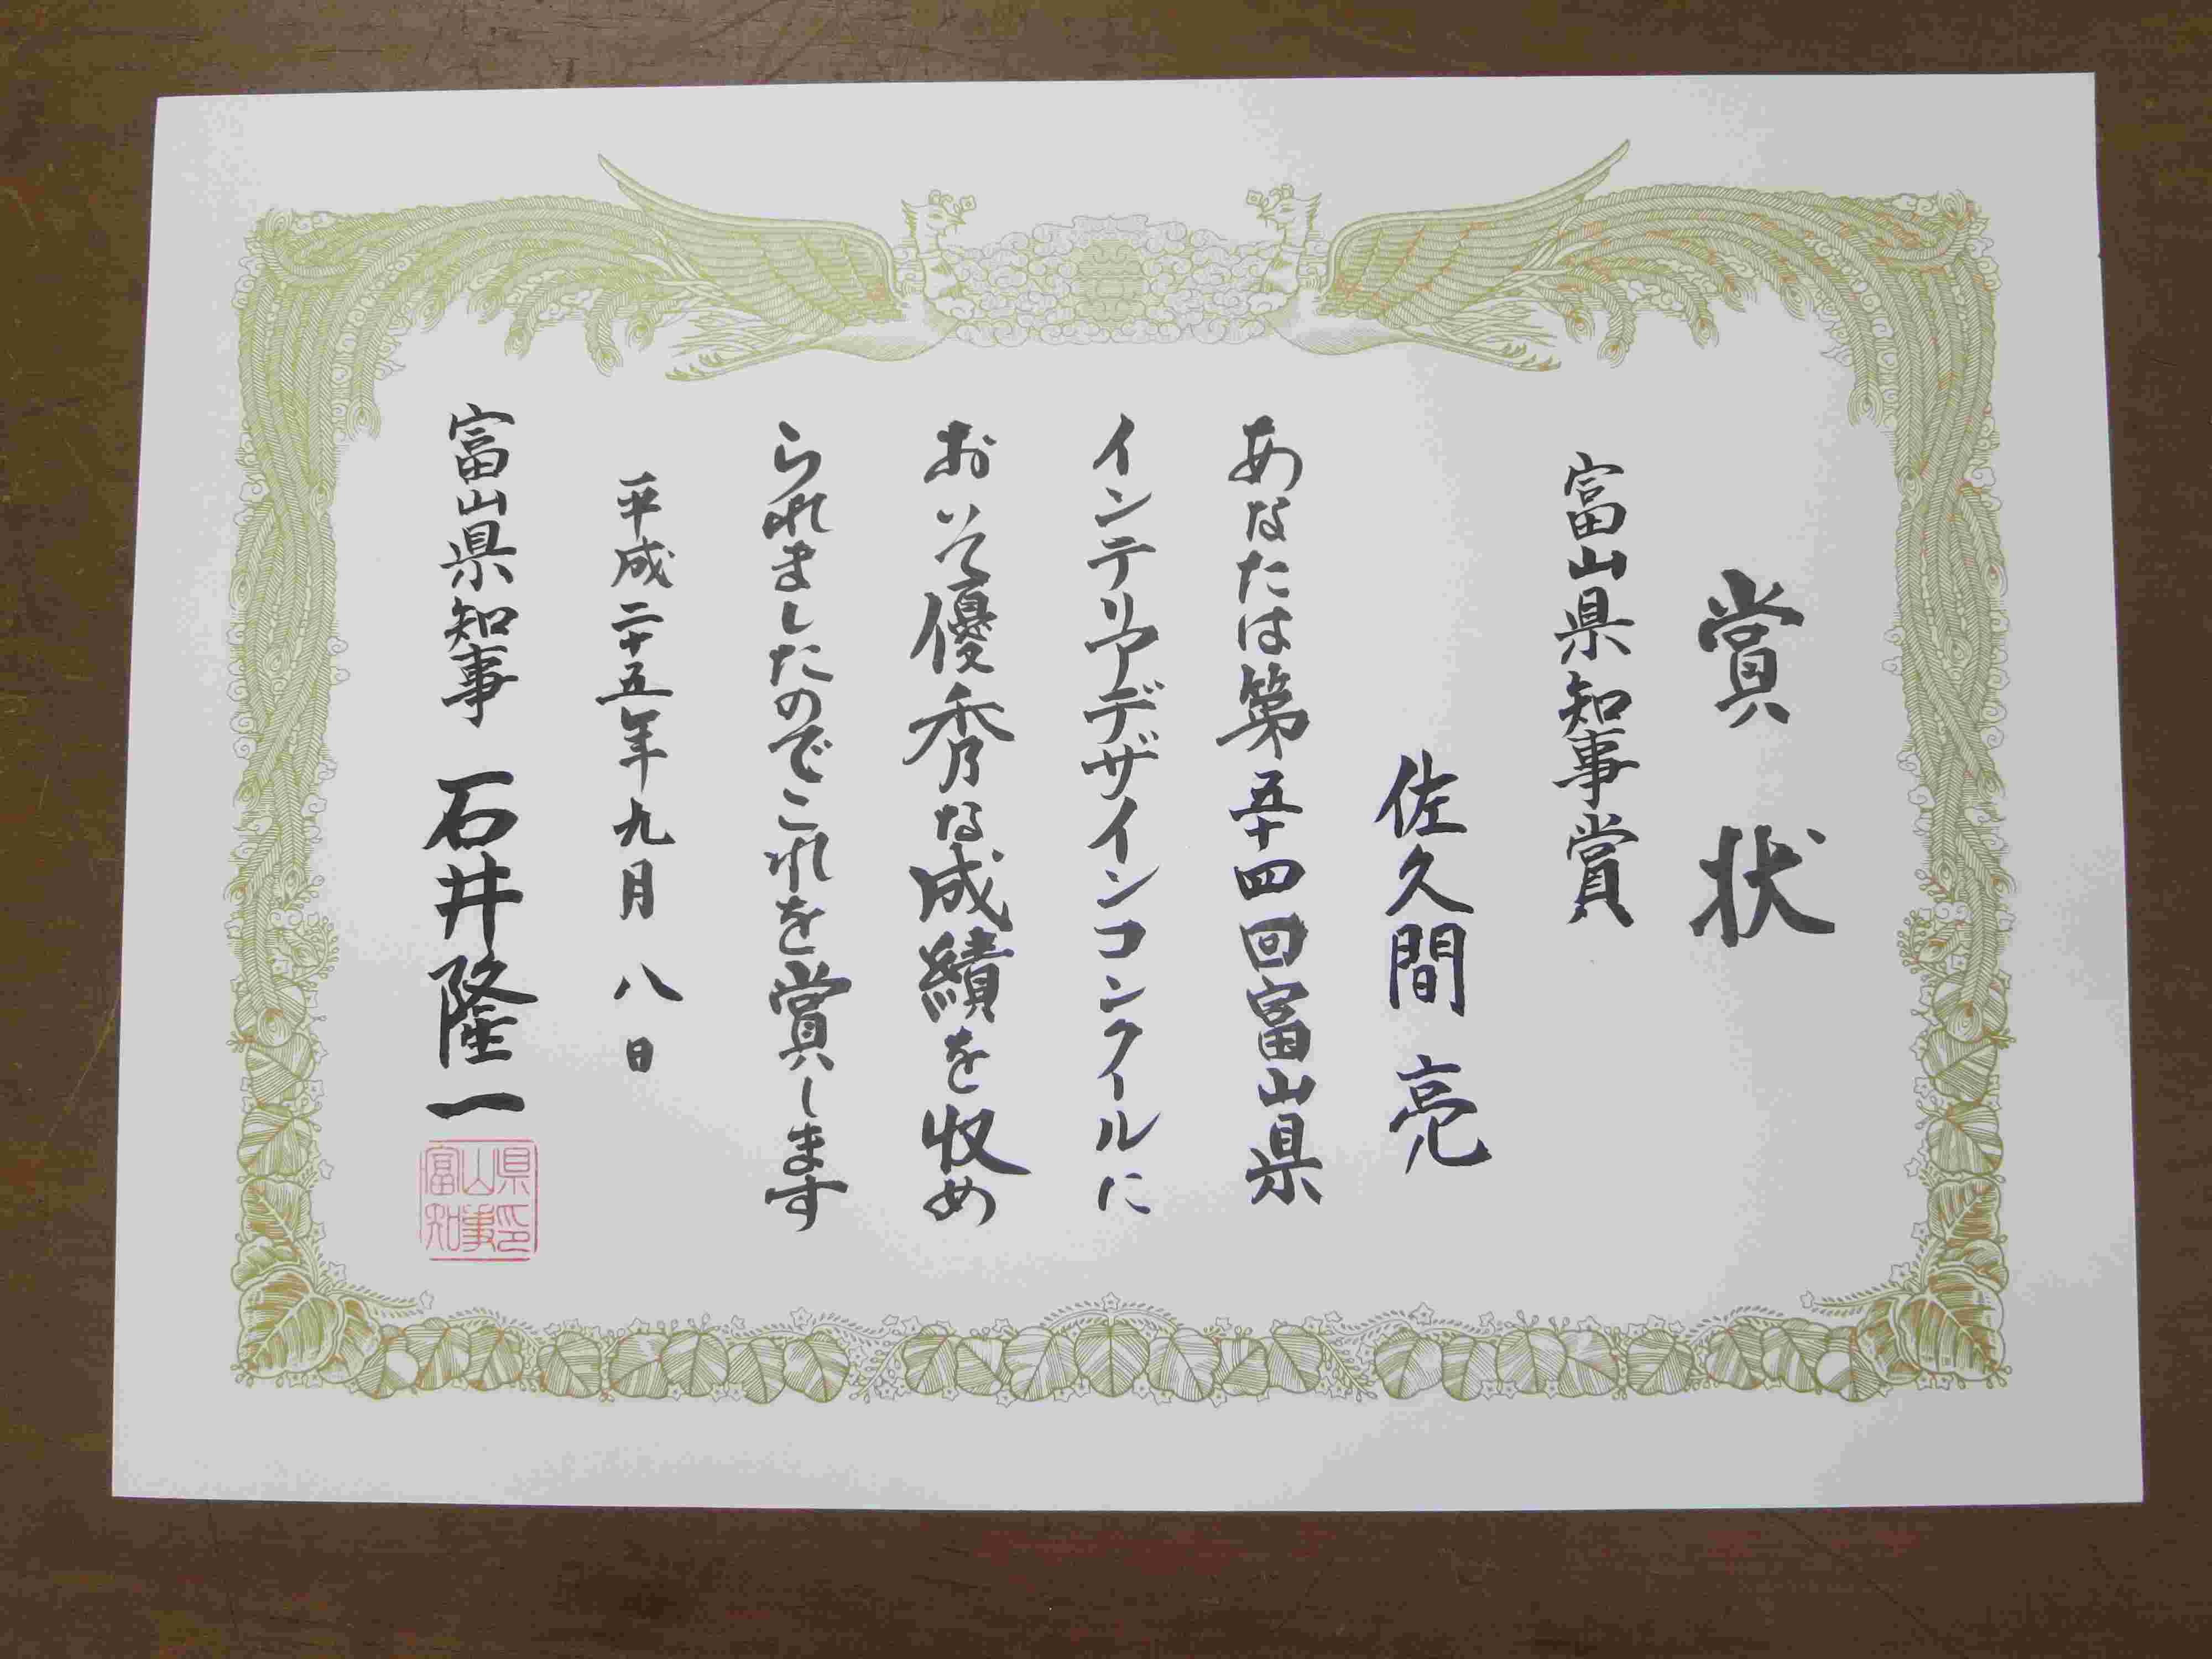 賞状
富山県知事賞
佐久間 亮
あなたは第五十四回富山県
インテリアデザインコンクールに
おいて優秀な成績を収め
られましたのでこれを賞します
平成二十五年九月八日
富山県知事 石井隆一
富山県
知事印